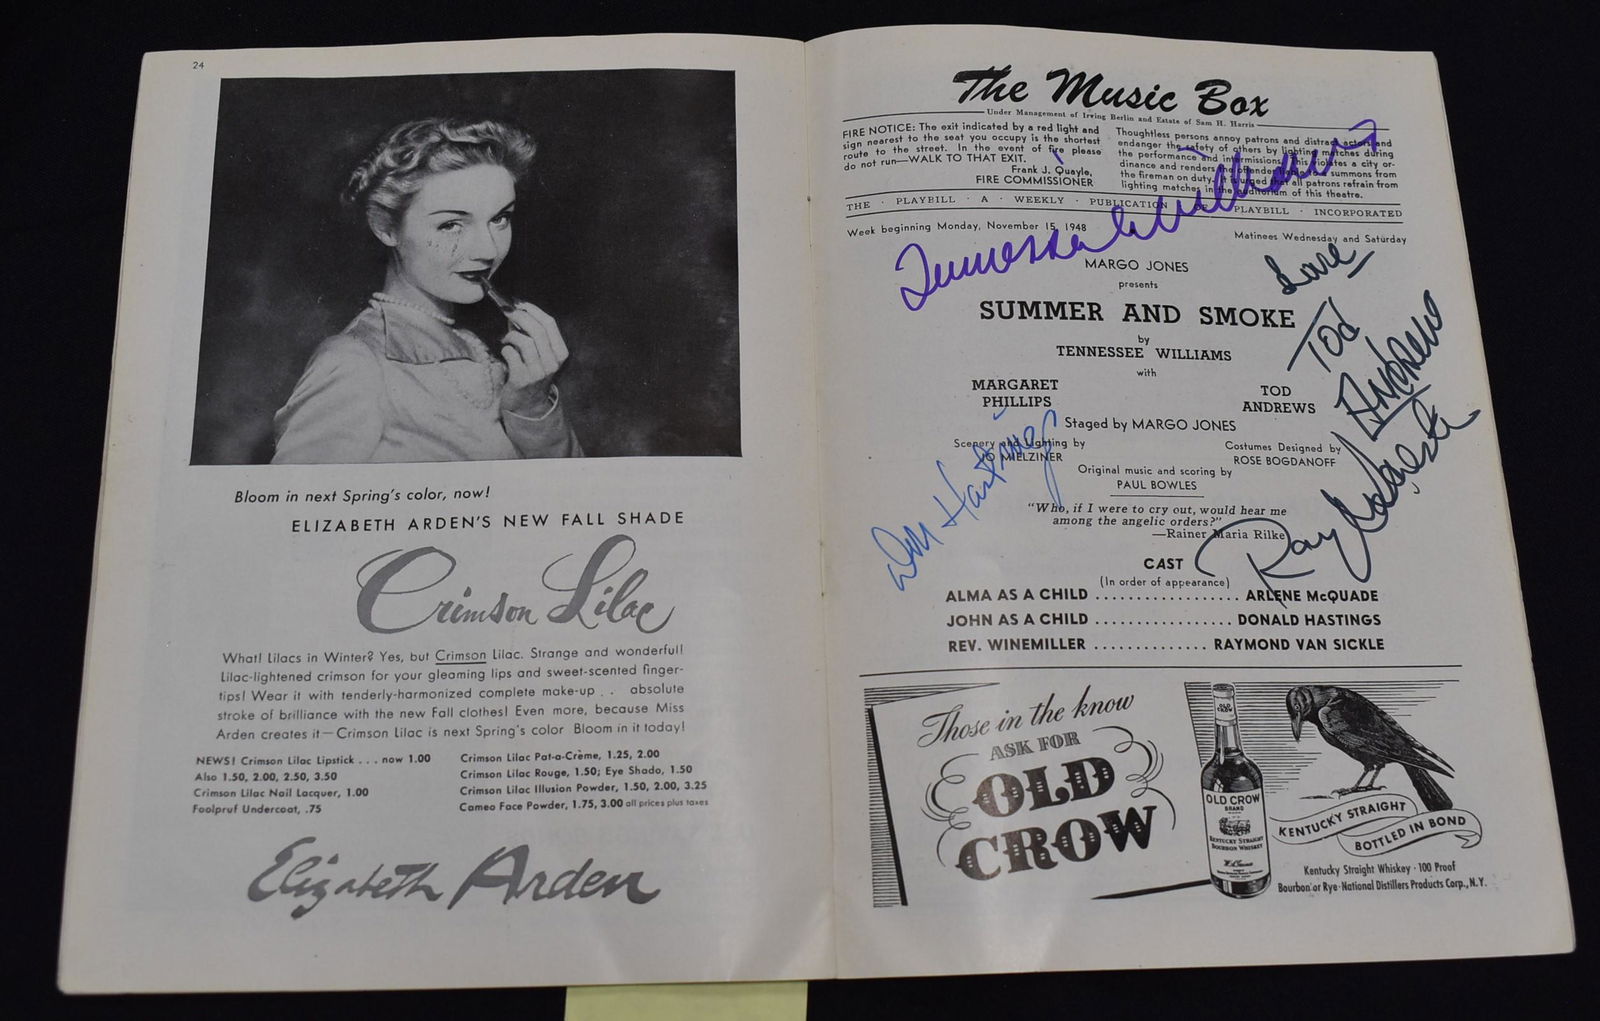 24
Bloom in next Spring's color, now!
ELIZABETH ARDEN'S NEW FALL SHADE
Crimson Lilac
What! Lilacs in Winter? Yes, but Crimson Lilac. Strange and wonderful!
Lilac-lightened crimson for your gleaming lips and sweet-scented finger-
tips! Wear it with tenderly-harmonized complete make-up . . absolute
stroke of brilliance with the new Fall clothes! Even more, because Miss
Arden creates it—Crimson Lilac is next Spring's color Bloom in it today!
NEWS! Crimson Lilac Lipstick . . . now 1.00
Also 1.50, 2.00, 2.50, 3.50
Crimson Lilac Nail Lacquer, 1.00
Foolpruf Undercoat, .75
Crimson Lilac Pat-a-Crème, 1.25, 2.00
Crimson Lilac Rouge, 1.50; Eye Shado, 1.50
Crimson Lilac Illusion Powder, 1.50, 2.00, 3.25
Cameo Face Powder, 1.75, 3.00 all prices plus taxes
Elizabeth Arden
The Music Box
Under Management of Irving Berlin and Estate of Sam H. Harris
FIRE NOTICE: The exit indicated by a red light and
sign nearest to the seat you occupy is the shortest
route to the street. In the event of fire please
do not run—WALK TO THAT EXIT.
Frank J. Quayle,
FIRE COMMISSIONER
Thoughtless persons annoy patrons and distract actors and
endanger the safety of others by lighting matches during
the performance and intermissions. This violates a city or-
dinance and renders the offender liable to a summons from
the fireman on duty. It is urged that all patrons refrain from
lighting matches in the auditorium of this theatre.
THE · PLAYBILL · A · WEEKLY · PUBLICATION OF PLAYBILL · INCORPORATED
Week beginning Monday, November 15, 1948
Matinees Wednesday and Saturday
Tennessee Williams
MARGO JONES
presents
Love
Tod
Andrews
SUMMER AND SMOKE
by
TENNESSEE WILLIAMS
with
MARGARET
PHILLIPS
TOD
ANDREWS
Staged by MARGO JONES
Scenery and Lighting by
JO MIELZINER
Costumes Designed by
ROSE BOGDANOFF
Original music and scoring by
PAUL BOWLES
Don Hastings
"Who, if I were to cry out, would hear me
among the angelic orders?"
—Rainer Maria Rilke
CAST
(In order of appearance)
ALMA AS A CHILD . . . . . . . . . . . . . . . . . ARLENE McQUADE
JOHN AS A CHILD . . . . . . . . . . . . . . . . DONALD HASTINGS
REV. WINEMILLER . . . . . . . . . . . . . RAYMOND VAN SICKLE
Those in the know
ASK FOR
OLD
CROW
OLD CROW
OLD CROW
BRAND
KENTUCKY STRAIGHT
BOURBON WHISKEY
KENTUCKY STRAIGHT
BOTTLED IN BOND
Kentucky Straight Whiskey · 100 Proof
Bourbon or Rye · National Distillers Products Corp., N.Y.